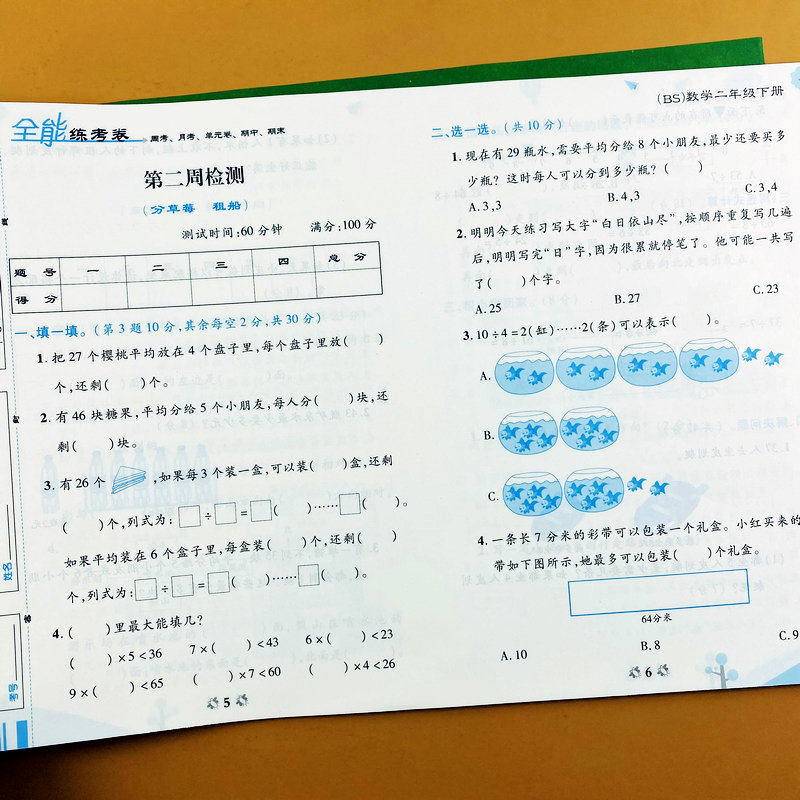 全能练考卷 周考、月考、单元卷、期中、期末
第二周检测
(分草莓 租船)
测试时间:60分钟 满分:100分
题号 一 二 三 四 总分
得分
一、填一填。(第3题10分,其余每空2分,共30分)
1.把27个樱桃平均放在4个盘子里,每个盘子里放( )
个,还剩( )个。
2.有46块糖果,平均分给5个小朋友,每人分( )块,还
剩( )块。
3.有26个 ,如果每3个装一盒,可以装( )盒,还剩
( )个,列式为:□÷□=□( )……□( )。
如果平均装在6个盒子里,每盒装( )个,还剩( )
个,列式为:□÷□=□( )……□( )。
4.( )里最大能填几?
( )×5<36 7×( )<43 6×( )<23
9×( )<65 ( )×7<60 ( )×4<26
5
姓名
考号
(BS)数学二年级下册
二、选一选。(共10分)
1.现在有29瓶水,需要平均分给8个小朋友,最少还要买多
少瓶?这时每人可以分到多少瓶?( )
A.3,3 B.4,3 C.3,4
2.明明今天练习写大字“白日依山尽”,按顺序重复写几遍
后,明明写完“日”字,因为很累就停笔了。他可能一共写
了( )个字。
A.25 B.27 C.23
3.10÷4=2(缸)……2(条)可以表示( )。
A.
B.
C.
4.一条长7分米的彩带可以包装一个礼盒。小红买来的
带如下图所示,她最多可以包装( )个礼盒。
64分米
A.10 B.8 C.9
6